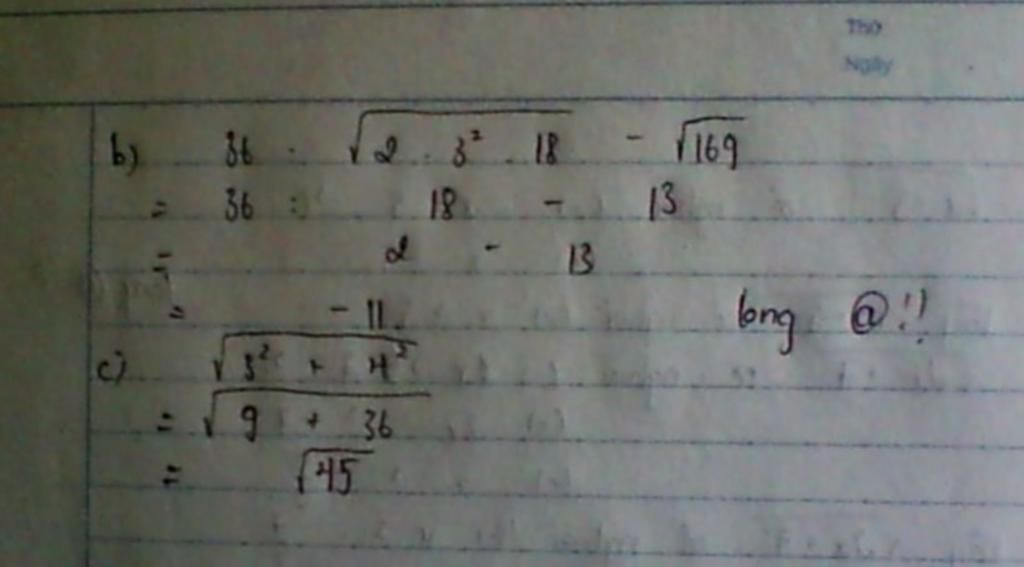 Thứ
Ngày
b) 36 : √(2 . 3² . 18) - √169
= 36 : 18 - 13
= 2 - 13
= - 11
long @!!
c) √(3² + 4²)
= √(9 + 36)
= √45